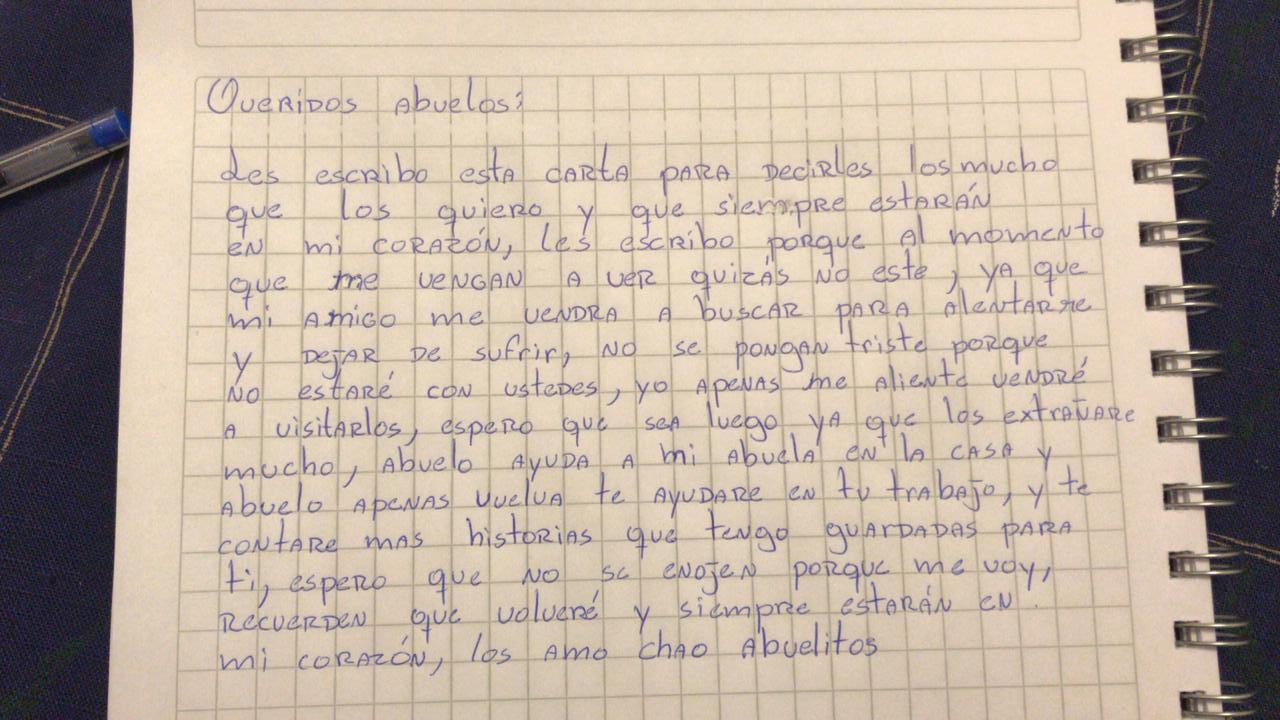 Queridos Abuelos:
Les escribo esta carta para decirles los mucho
que los quiero y que siempre estarán
en mi corazón, les escribo porque al momento
que me vengan a ver quizás no este, ya que
mi amigo me vendra a buscar para alentarme
y dejar de sufrir, no se pongan triste porque
no estaré con ustedes, yo apenas me aliente vendré
a visitarlos, espero que sea luego ya que los extrañare
mucho, abuelo ayuda a mi abuela en la casa y
abuelo apenas vuelva te ayudare en tu trabajo, y te
contare mas historias que tengo guardadas para
ti, espero que no se enojen porque me voy,
recuerden que volveré y siempre estarán en
mi corazón, los amo chao abuelitos